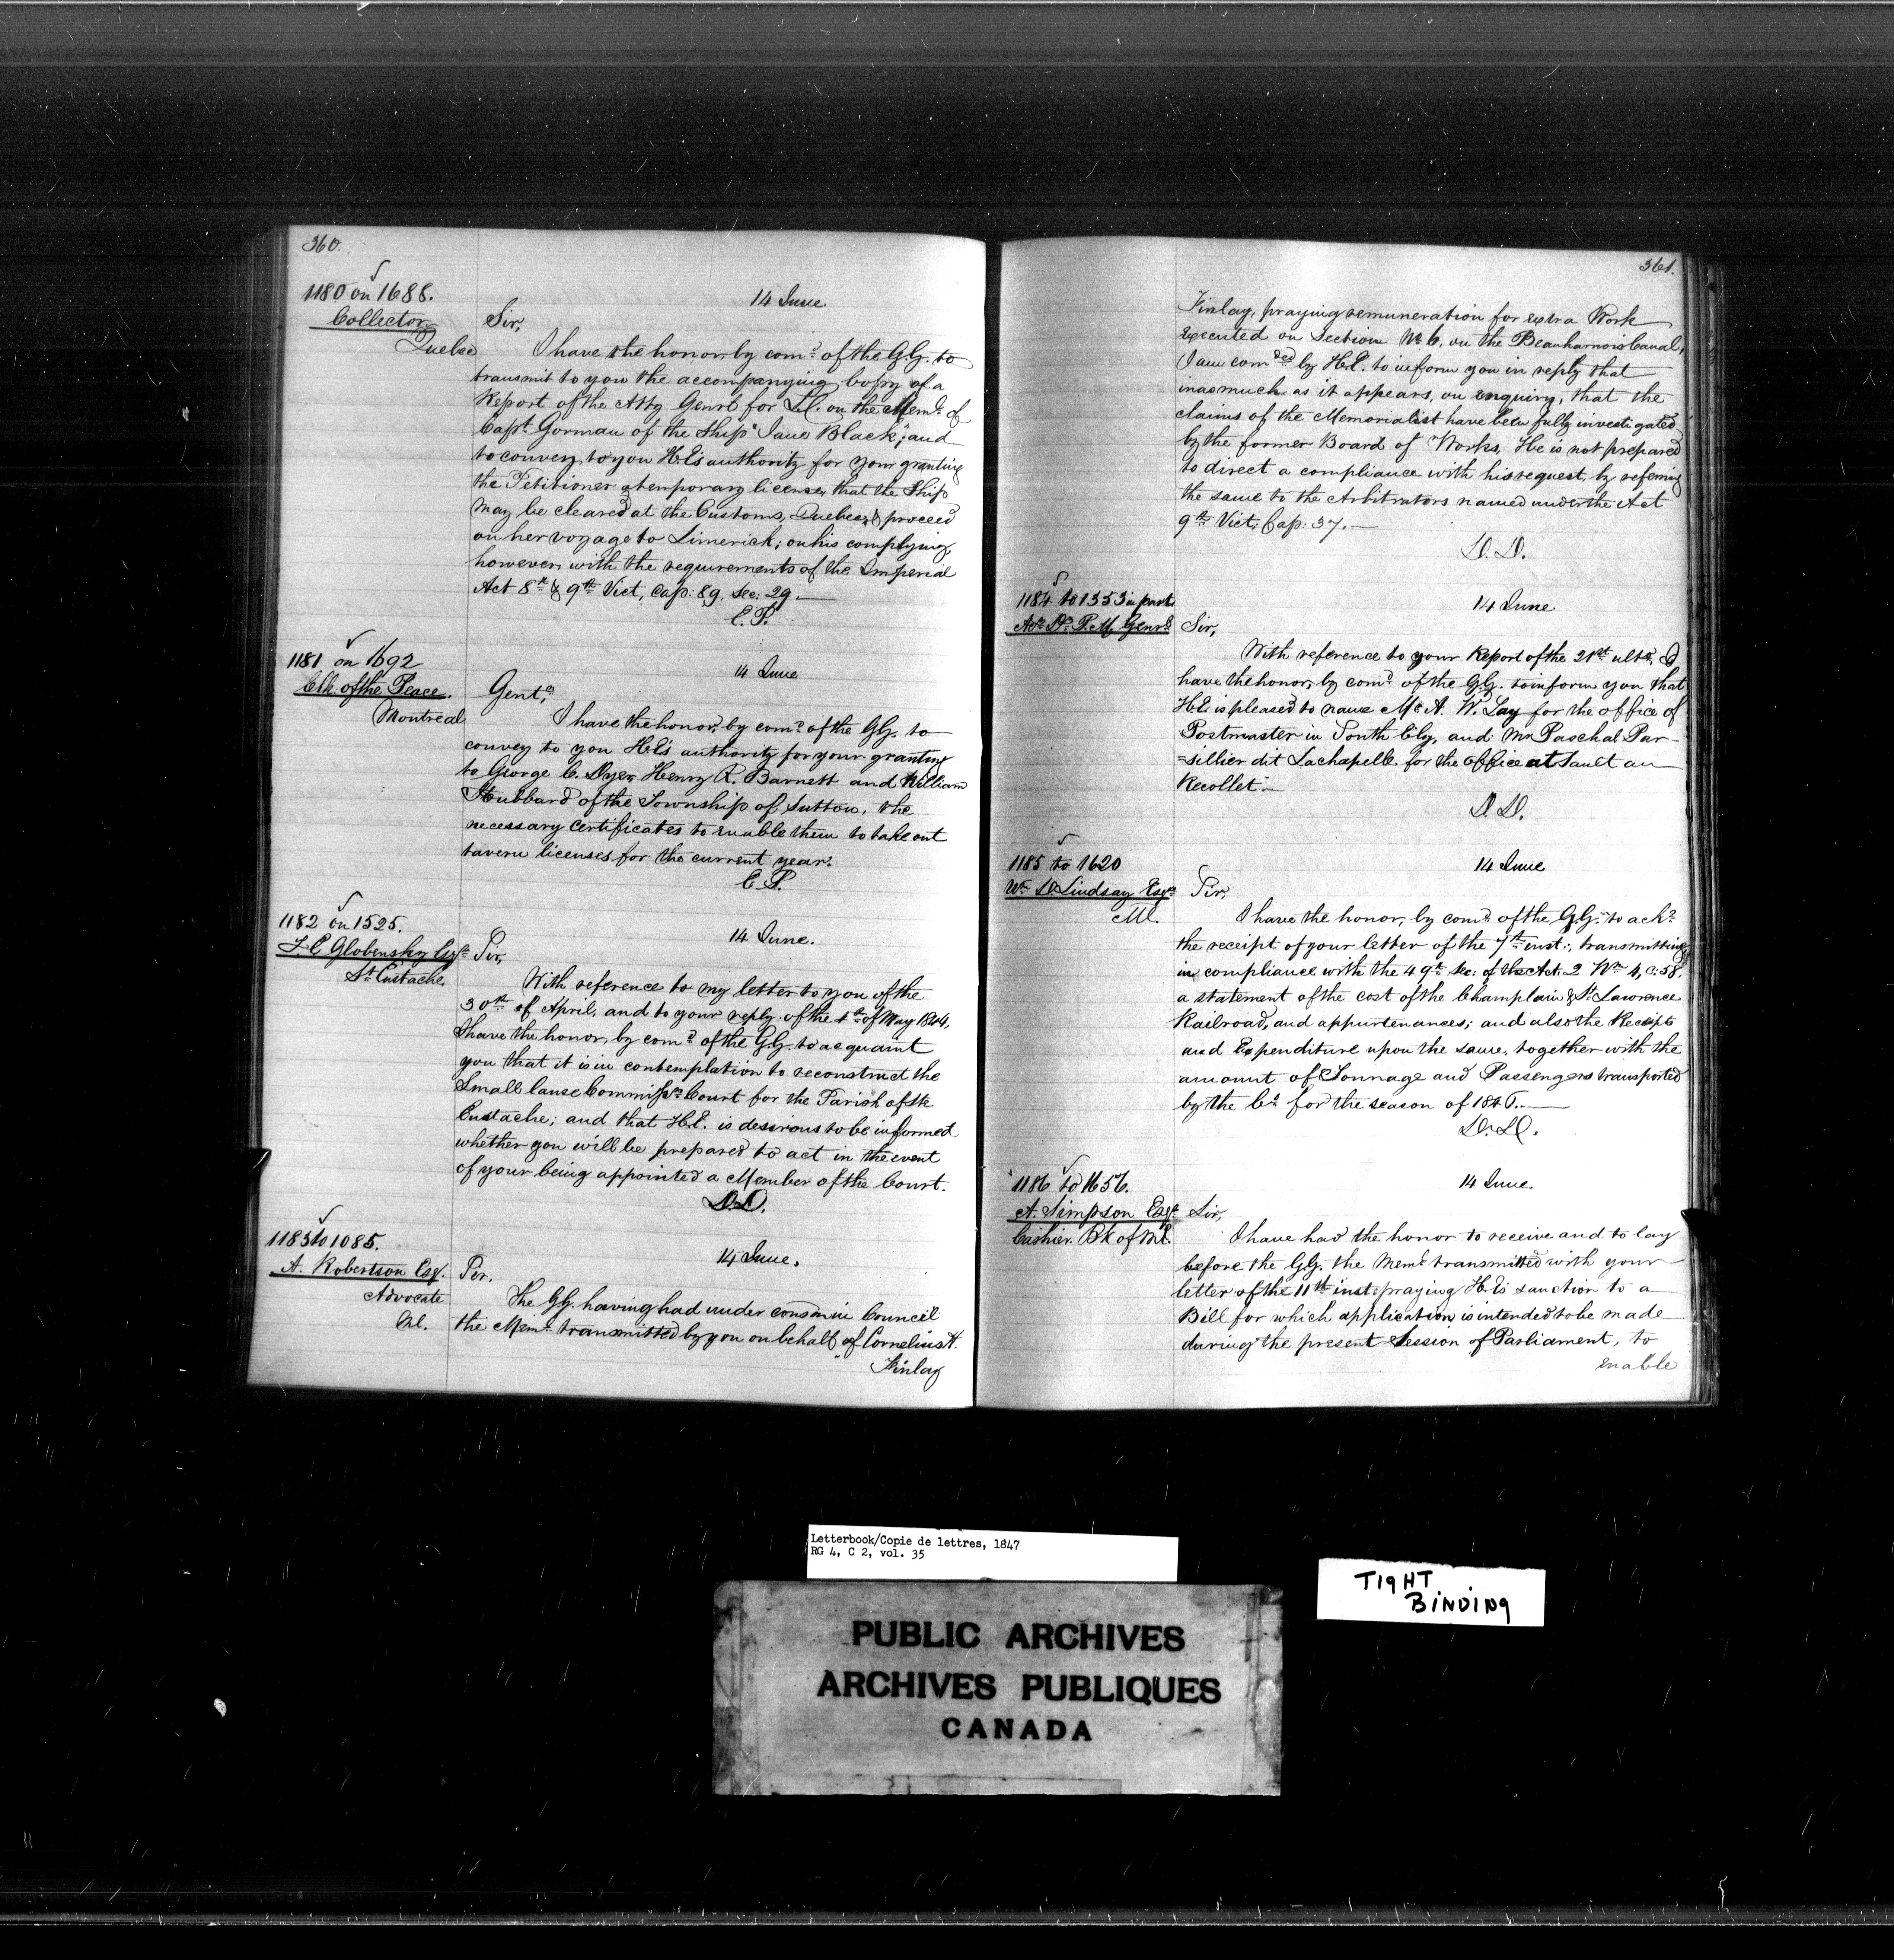 360.
1180 on 1688.
Collector
Quebec
14 June.
Sir,
I have the honor, by comd. of the G.G. to
transmit to you the accompanying copy of a
Report of the Atty Genrl for L.C. on the Meml. of
Capt. Gorman of the Ship "Jane Black"; and
to convey to you H.E's authority for your granting
the Petitioner a temporary license, that the Ship
may be cleared at the Customs, Quebec, & proceed
on her voyage to Limerick; on his complying,
however, with the requirements of the Imperial
Act 8th & 9th Vict, Cap: 89. Sec: 29.
E.P.
1181 on 1692
Clk. of the Peace.
Montreal
14 June
Gentn,
I have the honor, by comd. of the G.G. to
convey to you H.E's authority for your granting
to George C. Dyer, Henry R. Barnett and William
Hubbard of the Township of Sutton, the
necessary certificates to enable them to take out
tavern licenses for the current year.
E.P.
1182 on 1525.
F. E. Globensky Esqr.
St. Eustache.
14 June.
Sir,
With reference to my letter to you of the
30th of April, and to your reply of the of May 1844,
I have the honor, by comd. of the G.G. to acquaint
you that it is in contemplation to reconstruct the
Small Cause Commissrs Court for the Parish of St.
Eustache; and that H.E. is desirous to be informed
whether you will be prepared to act in the event
of your being appointed a Member of the Court.
D.D.
1183 to 1085.
A. Robertson Esq.
Advocate
Ml.
14 June.
Sir.
The G.G. having had under consn. in Council
the Meml. transmitted by you on behalf of Cornelius H.
Finlay
361.
Finlay, praying remuneration for extra Work
executed on Section No. 6. on the Beauharnois Canal,
I am comded by H.E. to inform you in reply that
inasmuch as it appears, on enquiry, that the
claims of the Memorialist have been fully investigated
by the former Board of Works, He is not prepared
to direct a compliance with his request, by referring
the same to the Arbitrators named under the Act
9th Vict; Cap: 37.
D.D.
1184 to 1353 in part
Actg. Dy. P. M. Genrl.
14 June
Sir,
With reference to your Report of the 21st ulto, I
have the honor, by comd. of the G.G. to inform you that
H.E. is pleased to name Mr A. W. Lay for the office of
Postmaster in South Ely, and Mr Paschal Per-
=sillier dit Lachapelle for the office at Sault au
Recollet.
D.D.
1185 to 1620
Wm. D. Lindsay Esqre
Ml.
14 June
Sir,
I have the honor, by comd. of the G.G. to ackn.
the receipt of your letter of the 7th inst:, transmitting
in compliance with the 49th Sec: of the Act. 2 Wm 4, C: 58.
a statement of the cost of the Champlain & St. Lawrence
Railroad, and appurtenances; and also the Receipts
and Expenditure upon the same, together with the
amount of Tonnage and Passengers transported
by the Co. for the season of
D.D.
1186 to 1656.
A. Simpson Esqr.
Cashier. Bk of Ml.
14 June.
Sir,
I have had the honor to receive and to lay
before the G.G. the Meml. transmitted with your
letter of the 11th inst: praying H.E's sanction to a
Bill for which application is intended to be made
during the present Session of Parliament, to
enable
Letterbook/Copie de lettres, 1847
RG 4, C 2, vol. 35
TIGHT
BINDING
PUBLIC ARCHIVES
ARCHIVES PUBLIQUES
CANADA